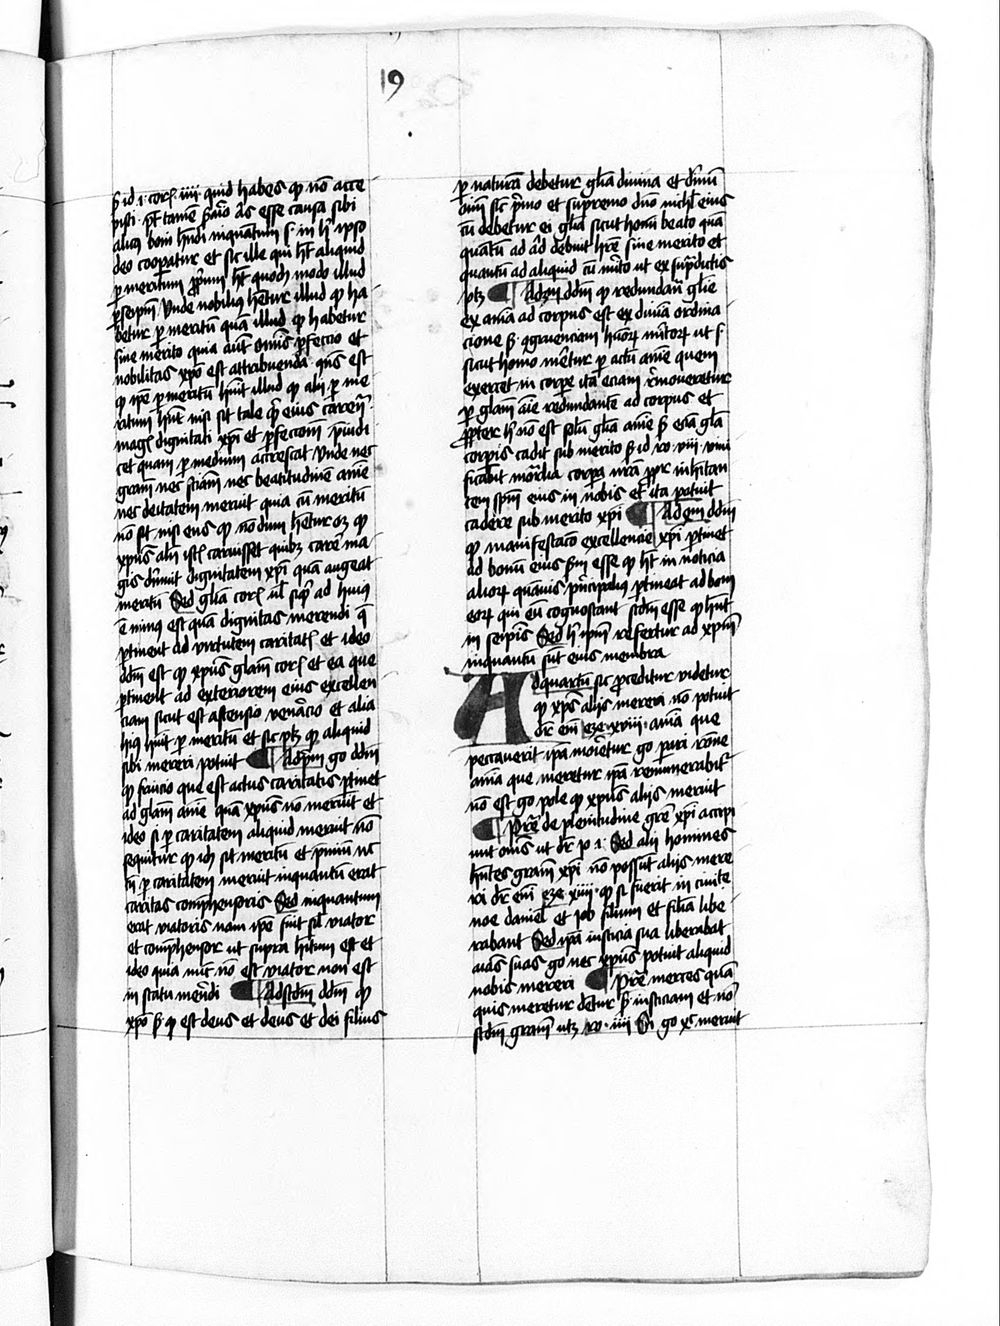 19
id i cor iiii quid habes qp nō acce
pisti ht tamē aliqs esse causa sibi
alicuius boni hñdi inquantum s in hoc ipso
deo cooperatur et sic ille qui ht aliquid
p meritum ht quodā modo illud
p seipm Unde nobilius hētur illud qp ha
betur p meritū quā illud qp habetur
sine merito quia aūt omīs pfectio et
nobilitas xpō est attribuenda qñs est
qp ipe p meritū hūit illud qp alij p me
ritum hñt nisi sit tale cuius carēcia
magis dignitati xpi et pfectioni piudi
cet quam p medium accrescat Unde nec
gratiam nec sciam nec beatitudinē anīe
nec deitatem meruit quia cū meritū
nō sit nisi eius qp nondum hētur qp
xpus aliqñ istis caruisset quibz carere ma
gis diminuit dignitatem xpi quā augeat
meritū Sed glīa corporis ul siqp ad huius
ē minus est quā dignitas merendi que
ptinent ad virtutem caritatis et ideo
ddm est qp xpus gliam corporis et ea que
ptinent ad exteriorem eius excellen
ciam sicut est ascensio veneracio et alia
huius hūit p meritū et sic ptz qp aliquid
sibi mereri potuit Ad pm go ddm
qp fruicio que est actus caritatis ptinet
ad gliam anie quā xpus nō meruit et
ideo si p caritatem aliquid meruit nō
sequitur qp idem sit meritū et pmium nec
tn p caritatem meruit inquantū erat
caritas comphensoris Sed inquantum
erat viatoris nam ipe fuit simul viator
et comphensor ut supra hitum est et
ideo quia nūc nō est viator non est
in statu merēdi Ad scdm ddm qp
xpō qp est deus et deus et dei filius
p naturā debetur glīa divina et dnium
oīum sic pmo et supremo dno nichilominus
tn debetur ei glīa sicut homi beato quā
quātum ad aliquid debuit hre sine merito et
quantū ad aliquid cū mito ut ex supdictis
ptz Ad 3m ddm qp redundacio glie
ex anīa ad corpus est ex divina ordina
cione congruenciam hūanorum mitorum ut s
sicut homo meretur p actū anime quem
exercet in corpe ita eciam remuneretur
p gliam aīe redundantē ad corpus et
ppter hoc nō est solū glīa anīe sed ecia glīa
corporis cadit sub merito id ro viii vivi
ficabit mortalia corpora nra ppter inhītan
tem spm eius in nobis et ita potuit
cadere sub merito xpi Ad 4m ddm
qp manifestacio excellencie xpi ptinet
ad bonū eius scdm esse qp ht in noticia
aliorum quāuis principalius ptineat ad bonū
eorum qui eū cognoscant scdm esse qp hnt
in seipsis Sed hoc ipm refertur ad xpm
inquantū sūt eius membra
Ad quartū sic proceditur videtur
qp xps alijs mereri nō potuit
dr enī eze xviii anīa que
peccaverit ipā moietur go pari rone
anīa que meretur ipā remunerabitur
nō est go pole qp xpus alijs meruit
Pre de plenitudine gre xpi accipi
unt oīs ut dr jo i Sed alij homines
hntes gram xpi nō possūt alijs mere
ri dr enī eze xiiii qp si fuerit in civite
noe daniel et job filium et filiā libe
rabunt Sed ipā iusticia sua liberabunt
aīas suas go nec xpus potuit aliquid
nobis mereri Pre merces quā
quis meretur detur iusticiam et nō
scdm gram utz ro iiii Si go xps meruit